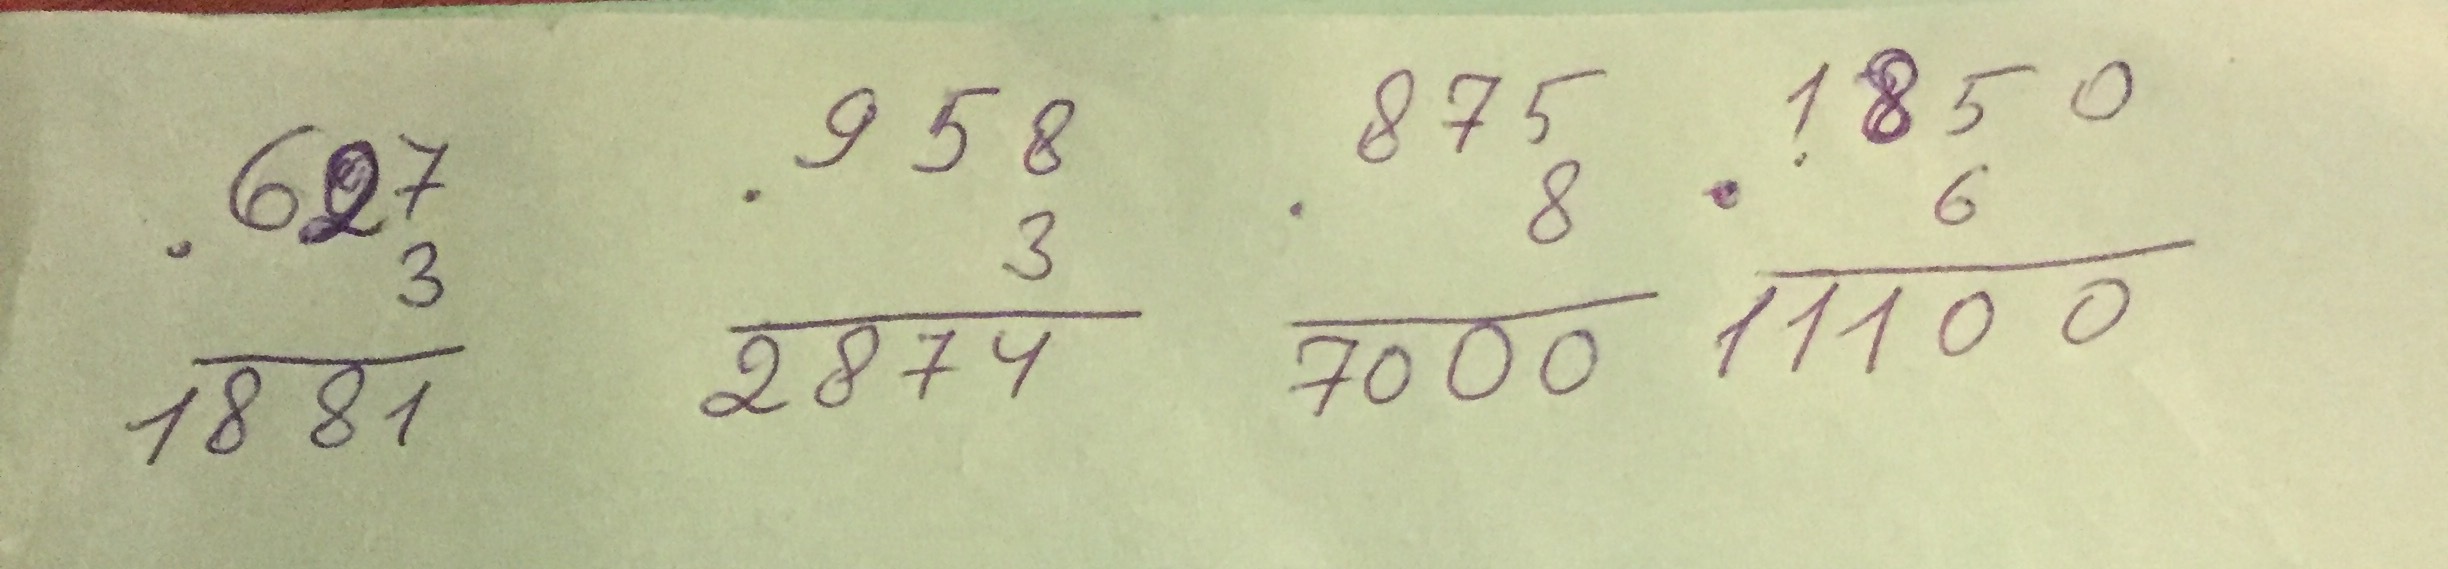 . 627
3
1881
. 958
3
2874
. 875
8
7000
. 1850
6
11100